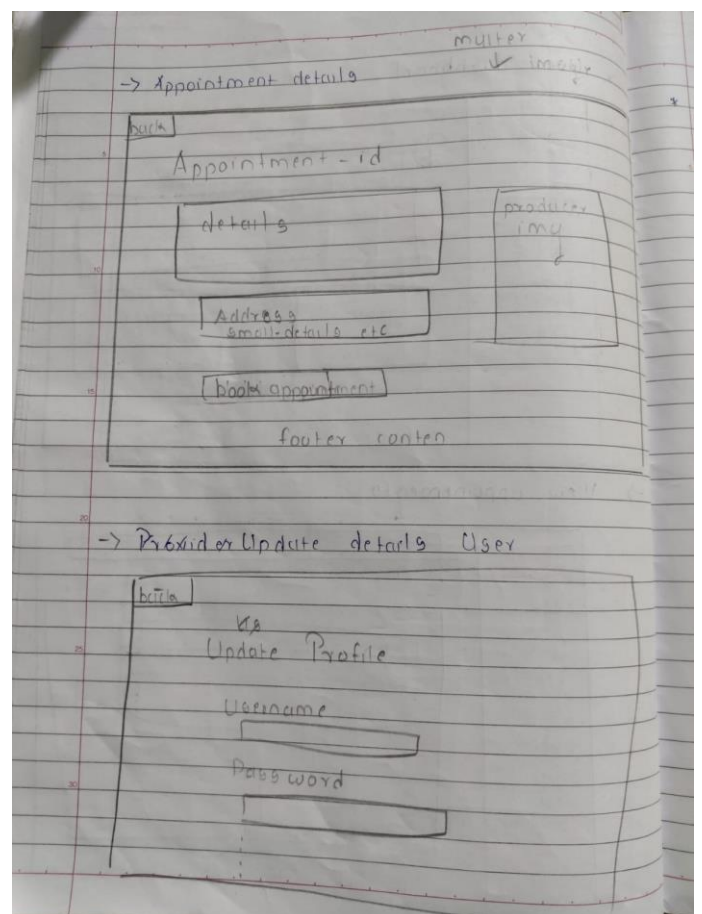 multer
↓ image
-> Appointment details
back
Appointment - id
details
producer
img
Address
small-details etc
book appointment
footer conten
-> Provider Update details User
back
Update Profile
Username
Password